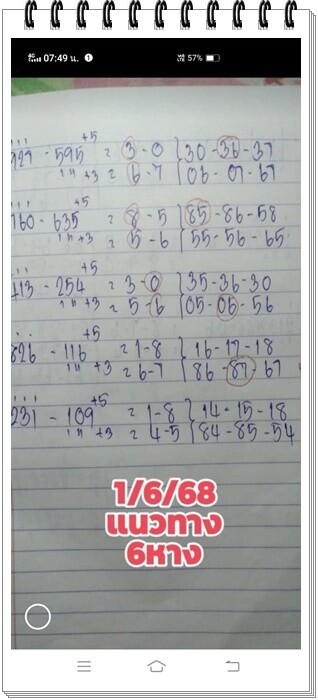 4G 07:49 น. 57%
927 - 595 +5 = 3 - 0 30 - 36 - 37
+3 = 6 - 7 06 - 07 - 67
760 - 635 +5 = 8 - 5 85 - 86 - 58
+3 = 5 - 6 55 - 56 - 65
413 - 254 +5 = 3 - 0 35 - 36 - 30
+3 = 5 - 6 05 - 06 - 56
826 - 116 +5 = 1 - 8 16 - 17 - 18
+3 = 6 - 7 86 - 87 - 67
231 - 109 +5 = 1 - 8 14 - 15 - 18
+3 = 4 - 5 84 - 85 - 54
1/6/68
แนวทาง
6หาง